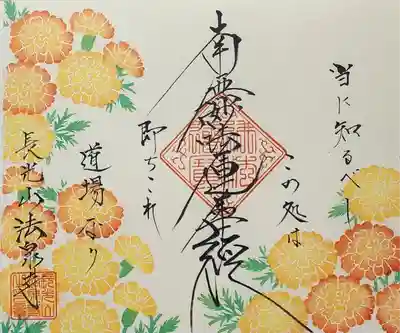 当に知るべし
この処は
南無妙法蓮華経
即ちこれ
道場なり
長光山法泉寺